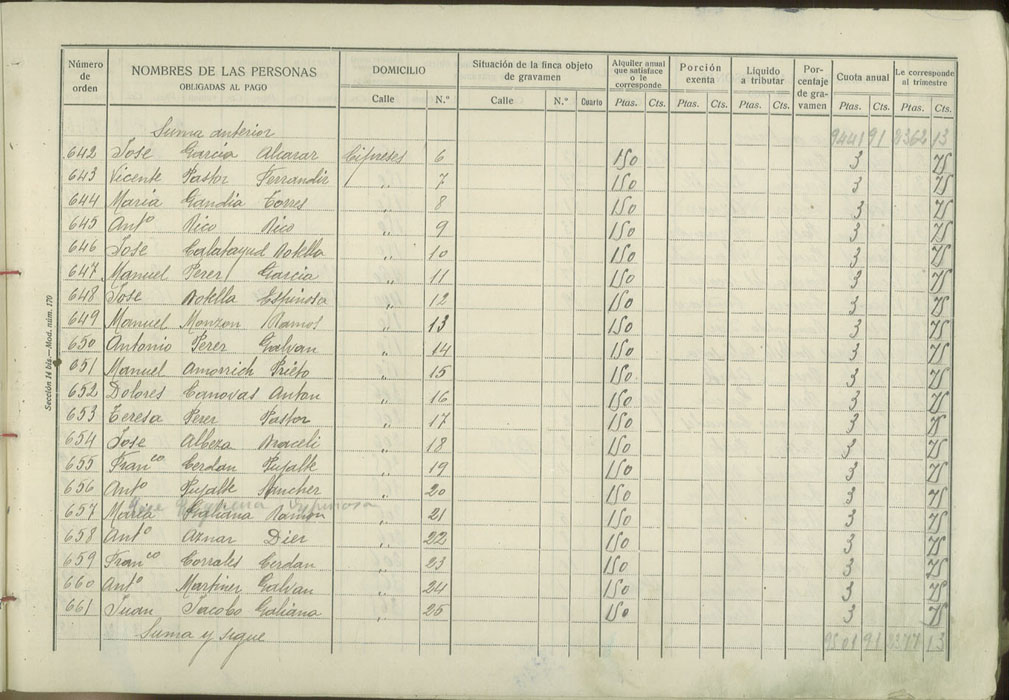 Número de orden | NOMBRES DE LAS PERSONAS OBLIGADAS AL PAGO | DOMICILIO | Situación de la finca objeto de gravamen | Alquiler anual que satisface o le corresponde | Porción exenta | Líquido a tributar | Por-centaje de gra-vamen | Cuota anual | Le corresponde al trimestre
Calle | N.º | Calle | N.º | Cuarto | Ptas. | Cts. | Ptas. | Cts. | Ptas. | Cts. | Ptas. | Cts. | Ptas. | Cts.
Suma anterior 9441 91 2362 13
642 Jose Garcia Alcarar Cipreses 6 150 3 75
643 Vicente Pastor Ferrandir " 7 150 3 75
644 Maria Gandia Torres " 8 150 3 75
645 Antº Rico Rico " 9 150 3 75
646 Jose Calatayud Botella " 10 150 3 75
647 Manuel Perer Garcia " 11 150 3 75
648 Jose Botella Espinosa " 12 150 3 75
649 Manuel Monzon Ramos " 13 150 3 75
650 Antonio Perer Galvan " 14 150 3 75
651 Manuel Amorrich Prieto " 15 150 3 75
652 Dolores Canovas Anton " 16 150 3 75
653 Teresa Perer Pastor " 17 150 3 75
654 Jose Albeza Araceli " 18 150 3 75
655 Franco Cerdan Pujalte " 19 150 3 75
656 Antº Pujalte Sancher " 20 150 3 75
Jose Espinosa
657 Maria Galiana Ramon " 21 150 3 75
658 Antº Aznar Dier " 22 150 3 75
659 Franco Corrales Cerdan " 23 150 3 75
660 Antº Martiner Galvan " 24 150 3 75
661 Juan Jacobo Galiana " 25 150 3 75
Suma y sigue 9501 91 2377 13
Sección 14 bis.—Mod. núm. 170